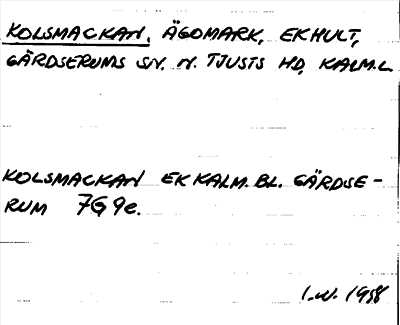 KOLSMACKAN. ÄGOMARK, EKHULT,
GÄRDSERUMS SN. N. TJUSTS HD, KALM.L.
KOLSMACKAN EK KALM. BL. GÄRDSE-
RUM 7G 9e.
I.W. 1958